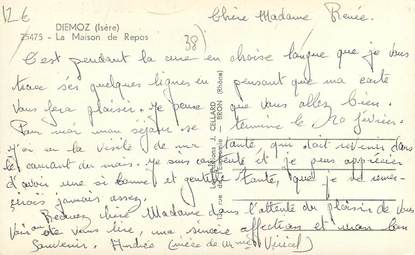 12 €
DIEMOZ (Isère)
25475 - La Maison de Repos
38)
Chère Madame Renée.
C'est pendant la cure en chaise longue que je vous
trace ces quelques lignes en pensant que ma carte
vous fera plaisir. Je pense que vous allez bien.
Pour moi mon séjour se termine le 20 février.
j'ai eu la visite de ma tante, qui doit revenir dans
le courant du mois. Je suis contente et je peux apprécier
d'avoir une si bonne et gentille tante, que je ne
jamais assez.
Recevez chère Madame dans l'attente du plaisir de vous
voir ou de vous lire, ma sincère affection et mon bon
Souvenir. Andrée (nièce de
Editions CELLARD
BRON (Rhône)